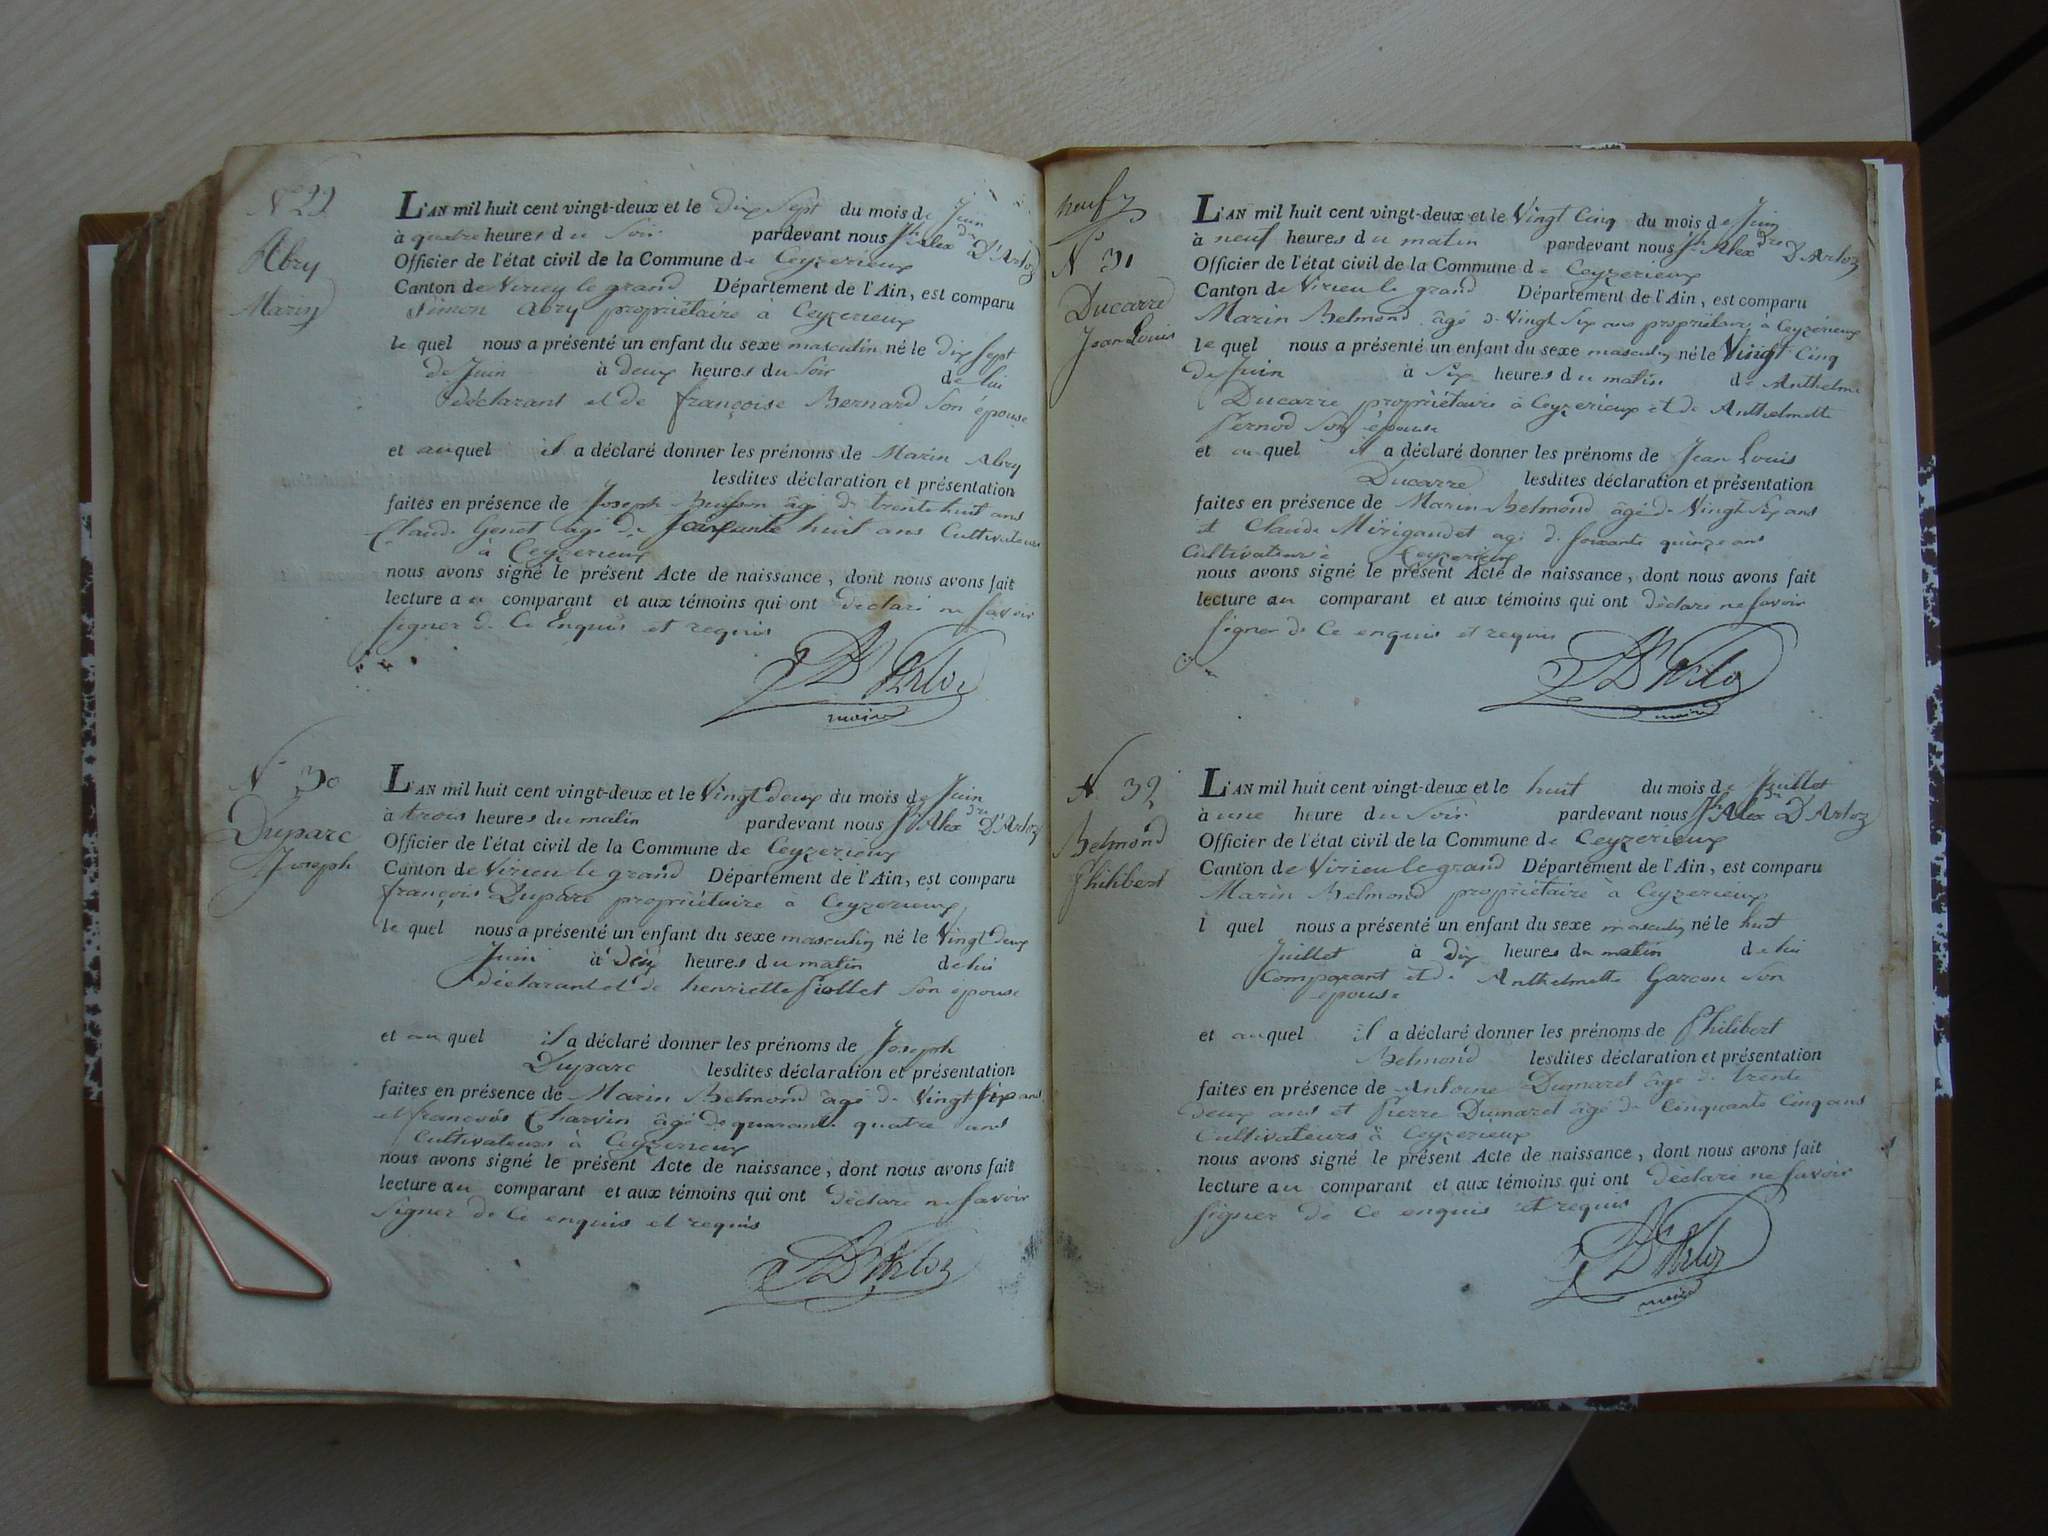 N° 29
Abry
Marin
L'AN mil huit cent vingt-deux et le dix Sept du mois de Juin
à quatre heures du Soir pardevant nous Jh Alexdre D'Arloz
Officier de l'état civil de la Commune de Ceyzerieux
Canton de Virieu le grand Département de l'Ain, est comparu
Simon Abry propriétaire à Ceyzerieux
le quel nous a présenté un enfant du sexe masculin né le dix Sept
de Juin à deux heures du Soir de lui
déclarant et de françoise Bernard Son épouse
et auquel il a déclaré donner les prénoms de Marin Abry
lesdites déclaration et présentation
faites en présence de Joseph âgé de trente huit ans
Claude Genet âgé de huit ans Cultivateurs
à Ceyzerieux
nous avons signé le présent Acte de naissance, dont nous avons fait
lecture au comparant et aux témoins qui ont déclaré ne Savoir
Signer de Ce Enquis et requis
D'Arloz
maire
N° 30
Duparc
Joseph
L'AN mil huit cent vingt-deux et le Vingt deux du mois de Juin
à trois heures du matin pardevant nous Jh Alexdre D'Arloz
Officier de l'état civil de la Commune de Ceyzerieux
Canton de Virieu le grand Département de l'Ain, est comparu
françois Duparc propriétaire à Ceyzerieux
le quel nous a présenté un enfant du sexe masculin né le Vingt deux
Juin à heures du matin de lui
déclarant et de henriette fiollet Son épouse
et au quel il a déclaré donner les prénoms de Joseph
Duparc lesdites déclaration et présentation
faites en présence de Marin Belmond âgé de Vingt Six ans
et françois Charvin âgé de quarante quatre ans
Cultivateurs à Ceyzerieux
nous avons signé le présent Acte de naissance, dont nous avons fait
lecture au comparant et aux témoins qui ont déclaré ne Savoir
Signer de Ce enquis et requis
D'Arloz
neuf
N° 31
Ducarre
Jean Louis
L'AN mil huit cent vingt-deux et le Vingt Cinq du mois de Juin
à neuf heures du matin pardevant nous Jh Alexdre D'Arloz
Officier de l'état civil de la Commune de Ceyzerieux
Canton de Virieu le grand Département de l'Ain, est comparu
Marin Belmond âgé de Vingt Six ans propriétaire à Ceyzérieux
le quel nous a présenté un enfant du sexe masculin né le Vingt Cinq
de Juin à Six heures du matin de Anthelme
Ducarre propriétaire à Ceyzerieux et de Anthelmette
Pernod Son épouse
et au quel il a déclaré donner les prénoms de Jean Louis
Ducarre lesdites déclaration et présentation
faites en présence de Marin Belmond âgé de Vingt Six ans
et Claude Mérigaudet agé de Soixante quinze ans
Cultivateurs à Ceyzerieux
nous avons signé le présent Acte de naissance, dont nous avons fait
lecture au comparant et aux témoins qui ont déclaré ne Savoir
Signer de Ce enquis et requis
D'Arloz
maire
N° 32
Belmond
Philibert
L'AN mil huit cent vingt-deux et le huit du mois de Juillet
à une heure du Soir pardevant nous Jh Alexdre D'Arloz
Officier de l'état civil de la Commune de Ceyzerieux
Canton de Virieu le grand Département de l'Ain, est comparu
Marin Belmond propriétaire à Ceyzerieux
l quel nous a présenté un enfant du sexe masculin né le huit
Juillet à dix heures du matin de lui
Comparant et de Anthelmette Garcon Son
épouse
et au quel il a déclaré donner les prénoms de Philibert
Belmond lesdites déclaration et présentation
faites en présence de Antoine Dumarel âgé de trente
deux ans et Pierre Dumarel âgé de Cinquante Cinq ans
Cultivateurs à Ceyzerieux
nous avons signé le présent Acte de naissance, dont nous avons fait
lecture au comparant et aux témoins qui ont déclaré ne Savoir
Signer de Ce enquis et requis
D'Arloz
maire